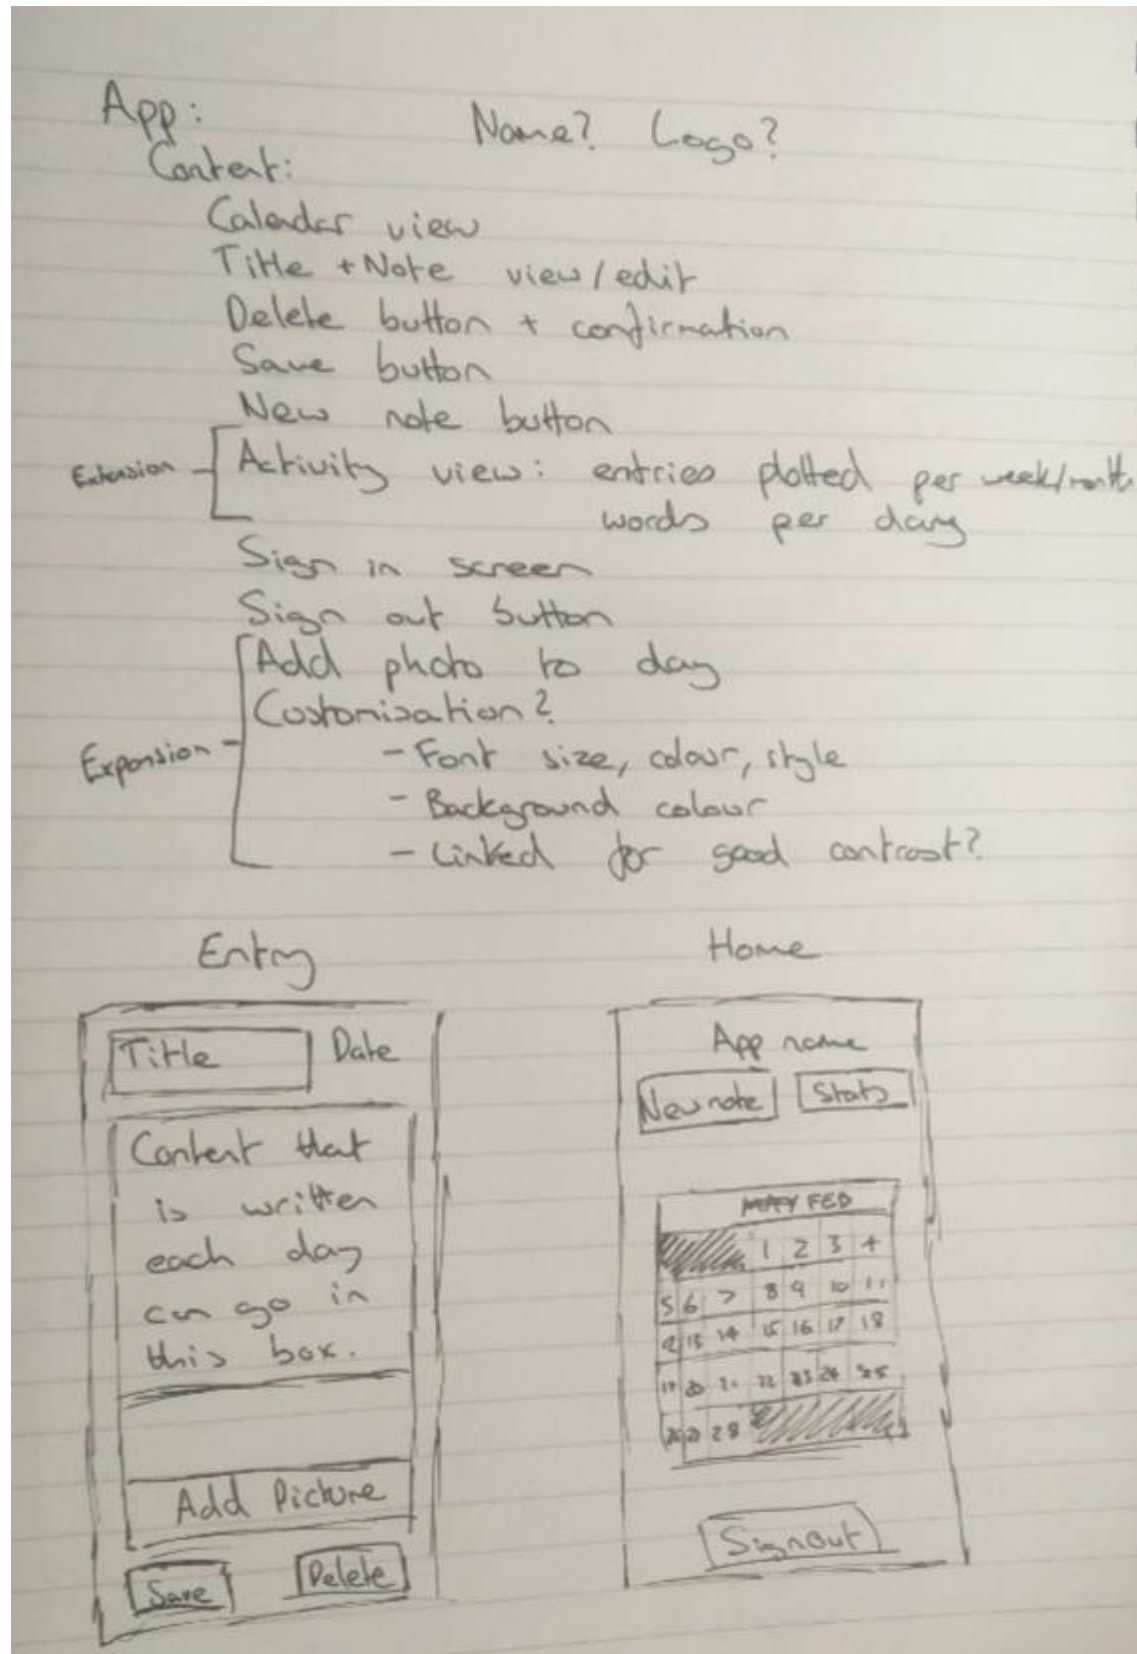 App:
Name? Logo?
Content:
Calendar view
Title + Note view/edit
Delete button + confirmation
Save button
New note button
Extension
Activity view: entries plotted per week/month
words per day
Sign in screen
Sign out button
Expansion
Add photo to day
Customisation?
- Font size, colour, style
- Background colour
- Linked for good contrast?
Entry
Title Date
Content that
is written
each day
can go in
this box.
Add Picture
Save Delete
Home
App name
New note Stats
FEB
1 2 3 4
5 6 7 8 9 10 11
12 13 14 15 16 17 18
19 20 21 22 23 24 25
26 27 28
Sign out